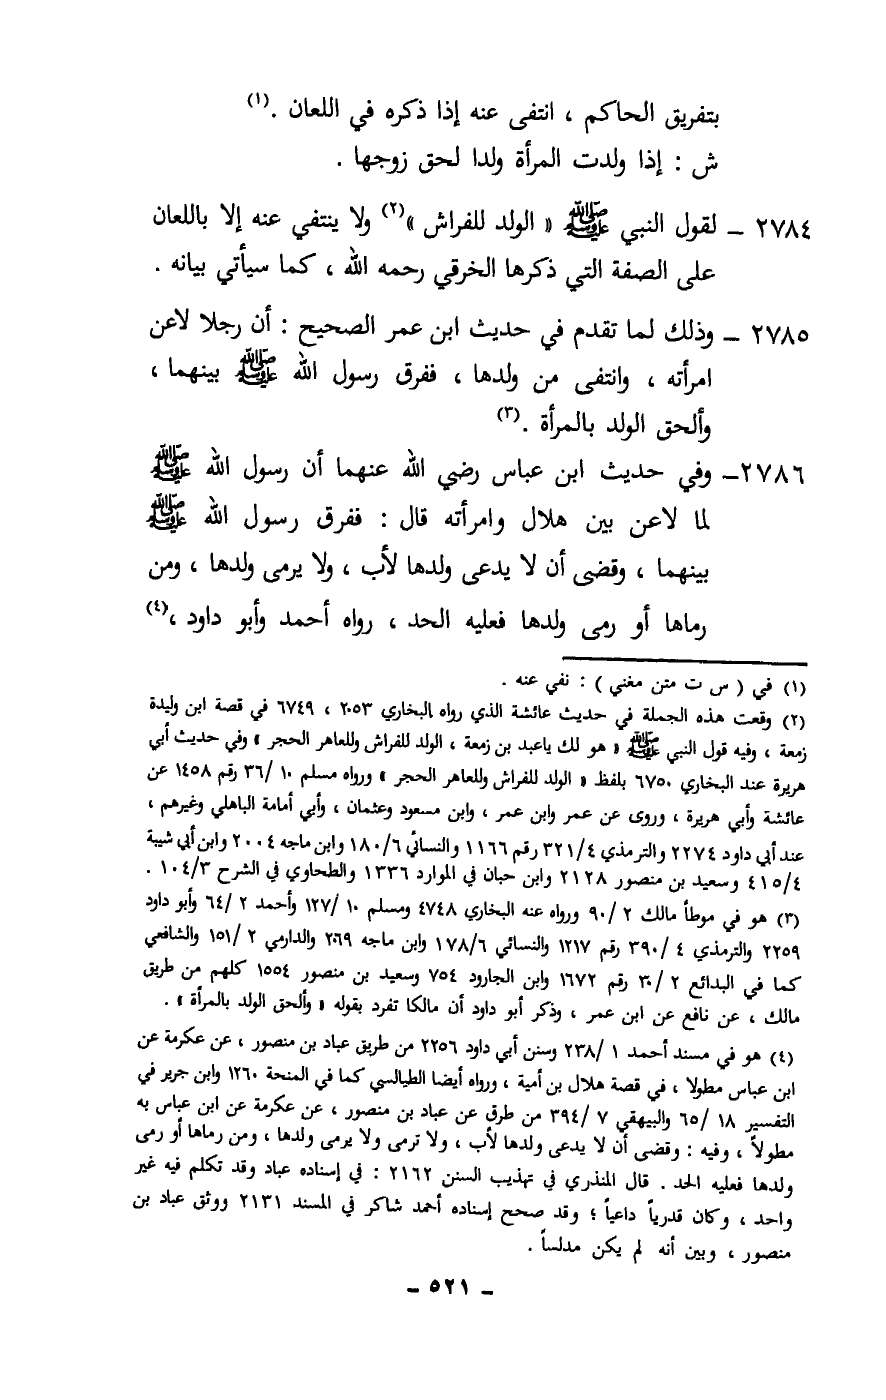 بتفريق الحاكم ، انتفى عنه إذا ذكره في اللعان .(١)
ش : إذا ولدت المرأة ولدا لحق زوجها .
٢٧٨٤ – لقول النبي ﷺ « الولد للفراش »(٢) ولا ينتفي عنه إلا باللعان
على الصفة التي ذكرها الخرقي رحمه الله ، كما سيأتي بيانه .
٢٧٨٥ – وذلك لما تقدم في حديث ابن عمر الصحيح : أن رجلا لاعن
امرأته ، وانتفى من ولدها ، ففرق رسول الله ﷺ بينهما ،
وألحق الولد بالمرأة .(٣)
٢٧٨٦– وفي حديث ابن عباس رضي الله عنهما أن رسول الله ﷺ
لما لاعن بين هلال وامرأته قال : ففرق رسول الله ﷺ
بينهما ، وقضى أن لا يدعى ولدها لأب ، ولا يرمى ولدها ، ومن
رماها أو رمى ولدها فعليه الحد ، رواه أحمد وأبو داود ،(٤)
(١) في ( س ت متن مغني ) : نفي عنه .
(٢) وقعت هذه الجملة في حديث عائشة الذي رواه البخاري ٢٠٥٣ ، ٦٧٤٩ في قصة ابن وليدة
زمعة ، وفيه قول النبي ﷺ « هو لك ياعبد بن زمعة ، الولد للفراش وللعاهر الحجر » وفي حديث أبي
هريرة عند البخاري ٦٧٥٠ بلفظ « الولد للفراش وللعاهر الحجر » ورواه مسلم ١٠ /٣٦ رقم ١٤٥٨ عن
عائشة وأبي هريرة ، وروى عن عمر وابن عمر ، وابن مسعود وعثمان ، وأبي أمامة الباهلي وغيرهم ،
عند أبي داود ٢٢٧٤ والترمذي ٣٢١/٤ رقم ١١٦٦ والنسائي ١٨٠/٦ وابن ماجه ٢٠٠٤ وابن أبي شيبة
٤١٥/٤ وسعيد بن منصور ٢١٢٨ وابن حبان في الموارد ١٣٣٦ والطحاوي في الشرح ١٠٤/٣ .
(٣) هو في موطأ مالك ٢ /٩٠ ورواه عنه البخاري ٤٧٤٨ ومسلم ١٠ /١٢٧ وأحمد ٢ /٦٤ وأبو داود
٢٢٥٩ والترمذي ٤ /٣٩٠ رقم ١٢١٧ والنسائي ١٧٨/٦ وابن ماجه ٢٠٦٩ والدارمي ٢ /١٥١ والشافعي
كما في البدائع ٢ /٣٠ رقم ١٦٧٢ وابن الجارود ٧٥٤ وسعيد بن منصور ١٥٥٤ كلهم من طريق
مالك ، عن نافع عن ابن عمر ، وذكر أبو داود أن مالكا تفرد بقوله « وألحق الولد بالمرأة » .
(٤) هو في مسند أحمد ١ /٢٣٨ وسنن أبي داود ٢٢٥٦ من طريق عباد بن منصور ، عن عكرمة عن
ابن عباس مطولا ، في قصة هلال بن أمية ، ورواه أيضا الطيالسي كما في المنحة ١٢٦٠ وابن جرير في
التفسير ١٨ /٦٥ والبيهقي ٧ /٣٩٤ من طرق عن عباد بن منصور ، عن عكرمة عن ابن عباس به
مطولاً ، وفيه : وقضى أن لا يدعى ولدها لأب ، ولا ترمى ولا يرمى ولدها ، ومن رماها أو رمى
ولدها فعليه الحد . قال المنذري في تهذيب السنن ٢١٦٢ : في إسناده عباد وقد تكلم فيه غير
واحد ، وكان قدرياً داعياً ؛ وقد صحح إسناده أحمد شاكر في المسند ٢١٣١ ووثق عباد بن
منصور ، وبين أنه لم يكن مدلساً .
– ٥٢١ –